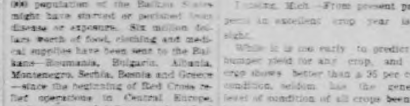 000 population of the Balkan States
might have starved or perished from
disease or exposure. Six million dol-
lars worth of food, clothing and med-
ical supplies have been sent to the Bal-
kans—Roumania, Bulgaria, Albania,
Montenegro, Serbia, Bosnia and Greece
—since the beginning of Red Cross re-
lief operations in Central Europe.
Lansing, Mich.—From present pros-
pects an excellent crop year is
sight.
While it is too early to predict
bumper yield for any crop, and
crop shows better than a 95 per
condition, seldom has the gene
level of condition of all crops been